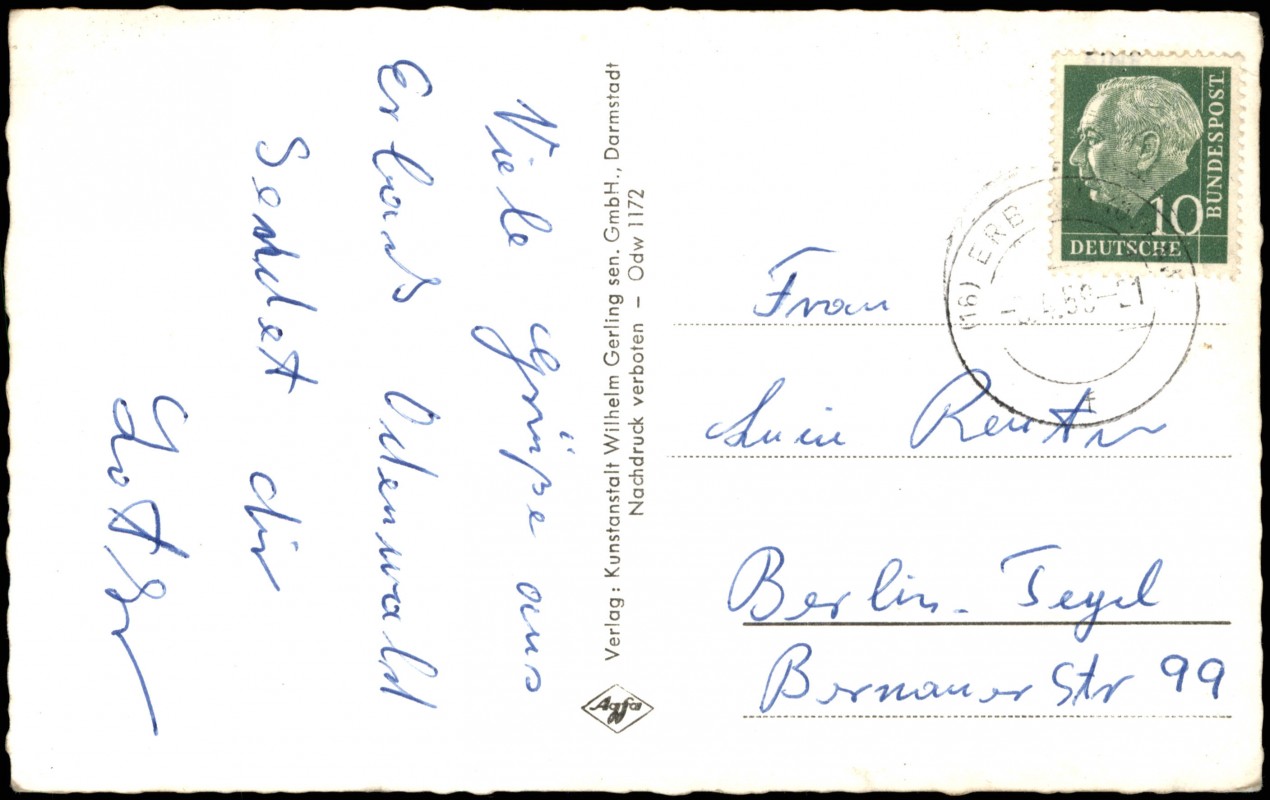 Viele Grüße aus
Erbach Odenwald
sendet dir
Verlag: Kunstanstalt Wilhelm Gerling sen. GmbH., Darmstadt
Nachdruck verboten – Odw 1172
Agfa
DEUTSCHE
BUNDESPOST
10
(16) ERB
Frau
Reuter
Berlin-Tegel
Bernauer Str 99